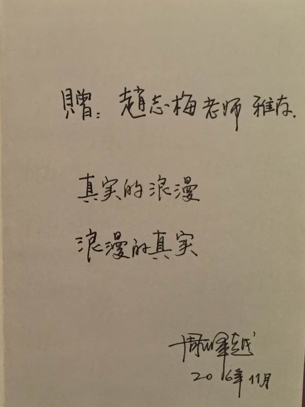 贈：趙志梅老师 雅存.
真实的浪漫
浪漫的真实
周峰越
2016年11月